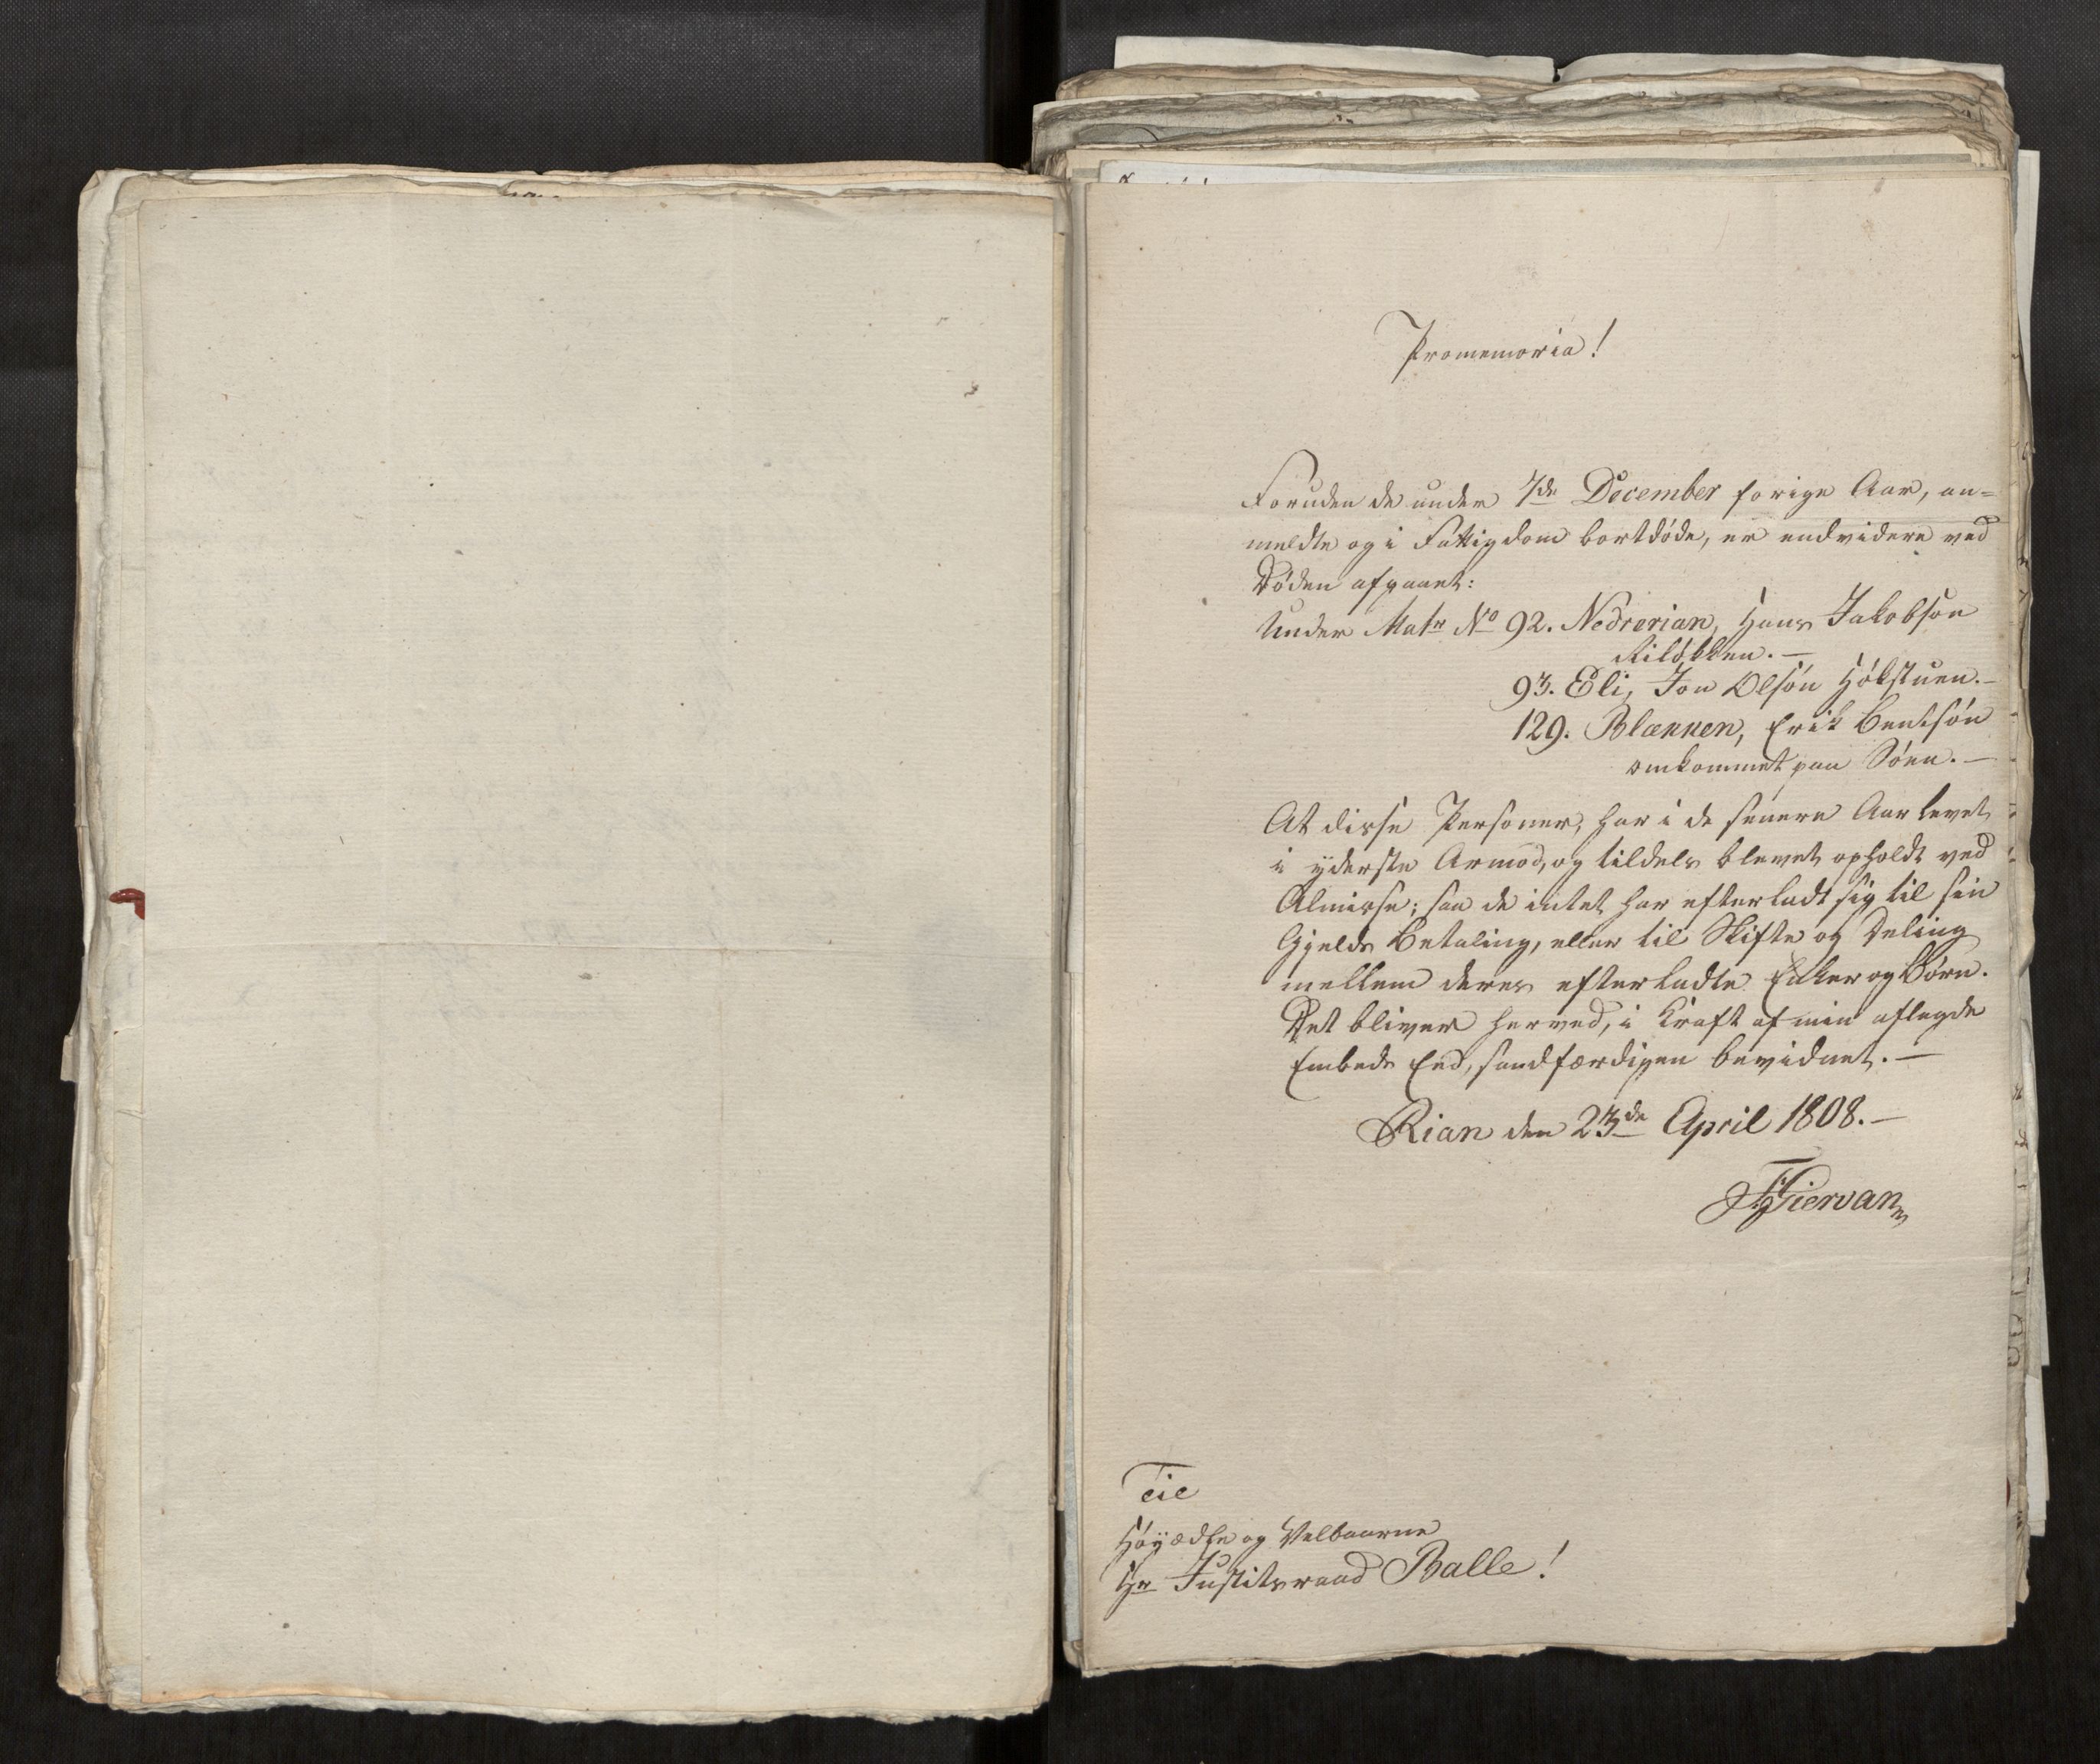 Promemoria!
Foruden de under 7de December forige Aar, an=
meldte og i Fattigdom bortdøde, er endvidere ved
Døden afgaaet:
Under Matr No 92. Nedrerian, Hans Jakobsøn
93. Eli, Jon Olsøn
129. Blækken, Erik Bentsøn
omkommet paa Søen.-
At disse Personer, har i de senere Aar levet
i yderste Armod, og tildels blevet opholdt ved
Almisse; saa de intet har efterladt sig til sin
Gjelds Betaling, eller til Skifte og Deling
mellem deres efterladte Enker og Børn.
Det bliver herved, i Kraft af min aflagde
Embeds Eed, sandfærdigen bevidnet.-
Rian den 23de April 1808.-
Til
Høyædle og Velbaarne
Hr Justitsraad Balle!